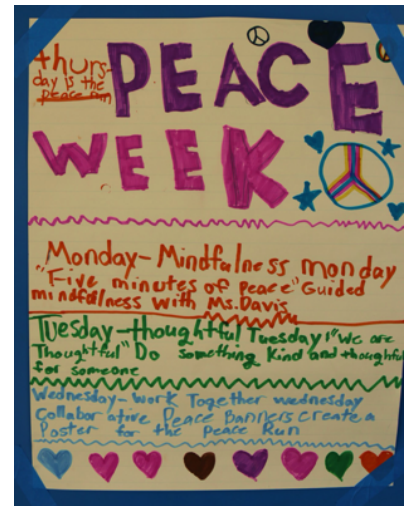 thurs-
day is the
peace run
PEACE
WEEK
Monday-Mindfulness monday
"Five minutes of peace" Guided
mindfulness with Ms. Davis
Tuesday-thoughtful Tuesday! "We are
Thoughtful" Do something kind and thoughtful
for someone
Wednesday-work Together wednesday
Collaborative Peace Banners create a
Poster for the peace Run